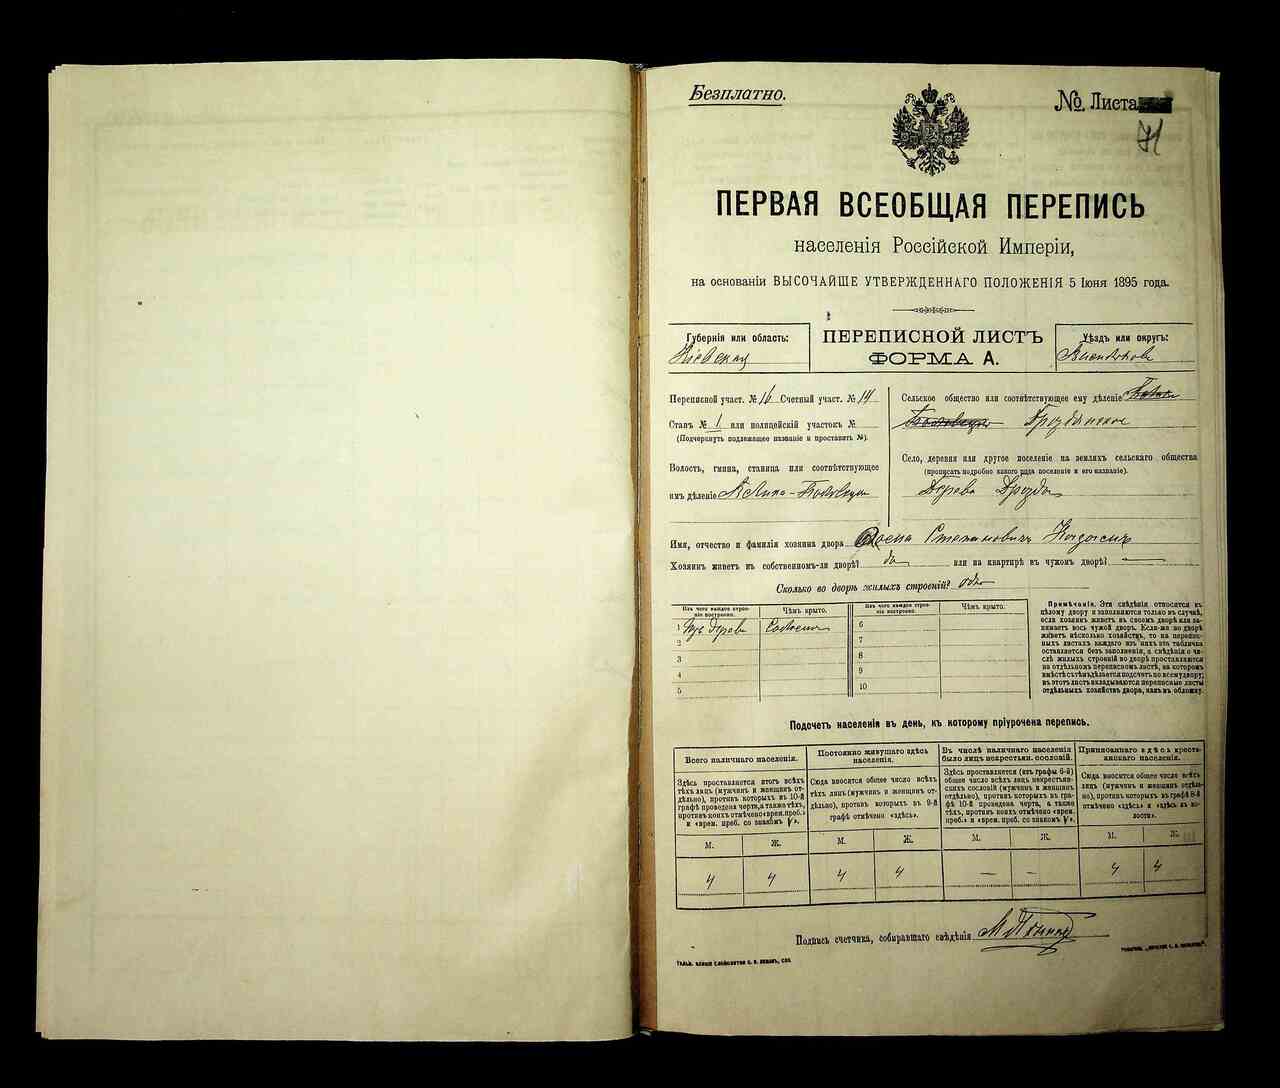 Безплатно.
№ Листа
71
ПЕРВАЯ ВСЕОБЩАЯ ПЕРЕПИСЬ
населенія Россійской Имперіи,
на основаніи ВЫСОЧАЙШЕ УТВЕРЖДЕННАГО ПОЛОЖЕНІЯ 5 Іюня 1895 года.
Губернія или область:
Кіевская
ПЕРЕПИСНОЙ ЛИСТЪ
ФОРМА А.
Уѣздъ или округъ:
Переписной участ. № 16 Счетный участ. № 14
Станъ № 1 или полицейскій участокъ №
(Подчеркнуть подлежащее названіе и проставить №).
Волость, гмина, станица или соотвѣтствующее
имъ дѣленіе
Сельское общество или соотвѣтствующее ему дѣленіе
Село, деревня или другое поселеніе на земляхъ сельскаго общества
(прописать подробно какого рода поселеніе и его названіе).
Имя, отчество и фамилія хозяина двора Степановичъ
Хозяинъ живетъ въ собственномъ-ли дворѣ? да или на квартирѣ въ чужомъ дворѣ? —
Сколько во дворѣ жилыхъ строеній?
Изъ чего каждое строеніе построено.
Чѣмъ крыто.
Изъ чего каждое строеніе построено.
Чѣмъ крыто.
1 Изъ дерева
2
3
4
5
6
7
8
9
10
Примѣчанія. Эти свѣдѣнія относятся къ
цѣлому двору и заполняются только въ случаѣ,
если хозяинъ живетъ въ своемъ дворѣ или занимаетъ
весь чужой дворъ. Если-же во дворѣ
живетъ нѣсколько хозяйствъ, то на переписныхъ
листахъ каждаго изъ нихъ эта табличка
оставляется безъ заполненія, а свѣдѣнія о числѣ
жилыхъ строеній во дворѣ проставляются
на отдѣльномъ переписномъ листѣ, на которомъ
вмѣстѣ съ тѣмъ дѣлается подсчетъ по всему двору;
въ этотъ листъ вкладываются переписные листы
отдѣльныхъ хозяйствъ двора, какъ въ обложку.
Подсчетъ населенія въ день, къ которому пріурочена перепись.
Всего наличнаго населенія.
Здѣсь проставляется итогъ всѣхъ
тѣхъ лицъ (мужчинъ и женщинъ отдѣльно),
противъ которыхъ въ 10-й
графѣ проведена черта, а также тѣхъ,
противъ коихъ отмѣчено «врем. преб.»
и «врем. преб. со знакомъ V».
Постоянно живущаго здѣсь
населенія.
Сюда вносится общее число всѣхъ
тѣхъ лицъ (мужчинъ и женщинъ отдѣльно),
противъ которыхъ въ 9-й
графѣ отмѣчено «здѣсь».
Въ числѣ наличнаго населенія
было лицъ некрестьян. сословій.
Здѣсь проставляется (изъ графы 6-й)
общее число всѣхъ лицъ некрестьянскихъ
сословій (мужчинъ и женщинъ
отдѣльно), противъ которыхъ въ графѣ
10-й проведена черта, а также
тѣхъ, противъ коихъ отмѣчено «врем.
преб.» и «врем. преб. со знакомъ V».
Приписаннаго здѣсь крестьянскаго
населенія.
Сюда вносится общее число всѣхъ
лицъ (мужчинъ и женщинъ отдѣльно),
противъ которыхъ въ графѣ 8-й
отмѣчено «здѣсь» и «здѣсь въ волости».
М. Ж. М. Ж. М. Ж. М. Ж.
4 4 4 4 — — 4 4
Подпись счетчика, собиравшаго свѣдѣнія